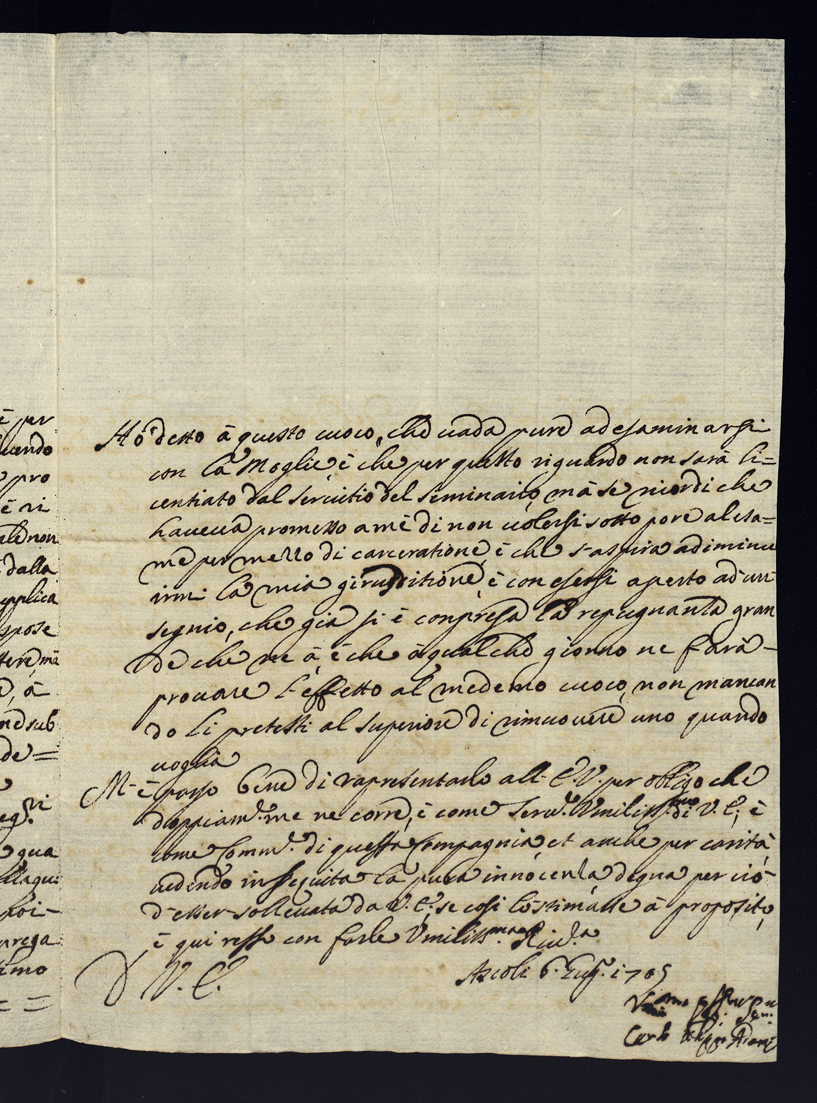 è per
uando
pro
è ri
ale non
dalla
applica
spose
tere, mà
à
ne sub
de=
qua
poi-
prega
timo
Hò detto à questo cuoco, che vada pure ad esaminarsi
con la Moglie, è che per questo riguardo non sarà li=
centiato dal servitio del seminario, mà se ricordi che
haveva promesso a mè di non volersi sotto pore al esa=
me per mezzo di carceratione, è che s'aspira ad iminu
irmi la mia giurisditione, è con essersi aperto ad un
segnio, che già si è conpresa la repugnanza gran
de che me à, è che à qualche giorno ne farà-
provare l'effetto al medemo cuoco, non mancan
do li pretesti al superiore di rimuovere uno quando
voglia
M'è parso bene di rapresentarlo all' E.V. per obligo che
doppiam.te me ne corre, è come Serv.re Umiliss.mo di V.E., è
come Comm.rio di questa Compagnia et anche per carità,
vedendo inseguita la pura innocenza degna per ciò
d'esser sollevata da V.E. se così lo stimasse à proposito,
è qui resto con farle Umiliss.ma Riv.za
D V. E.
Ascoli 6. 1705
Carlo Adami